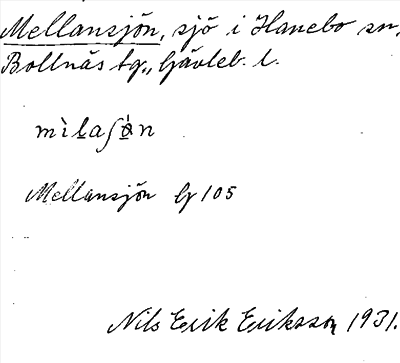 Mellansjön, sjö i Hanebo sn,
Bollnäs tg., Gävleb. l.
mìlaʃɒ̀n
Mellansjön G 105
Nils Erik Eriksson 1931.